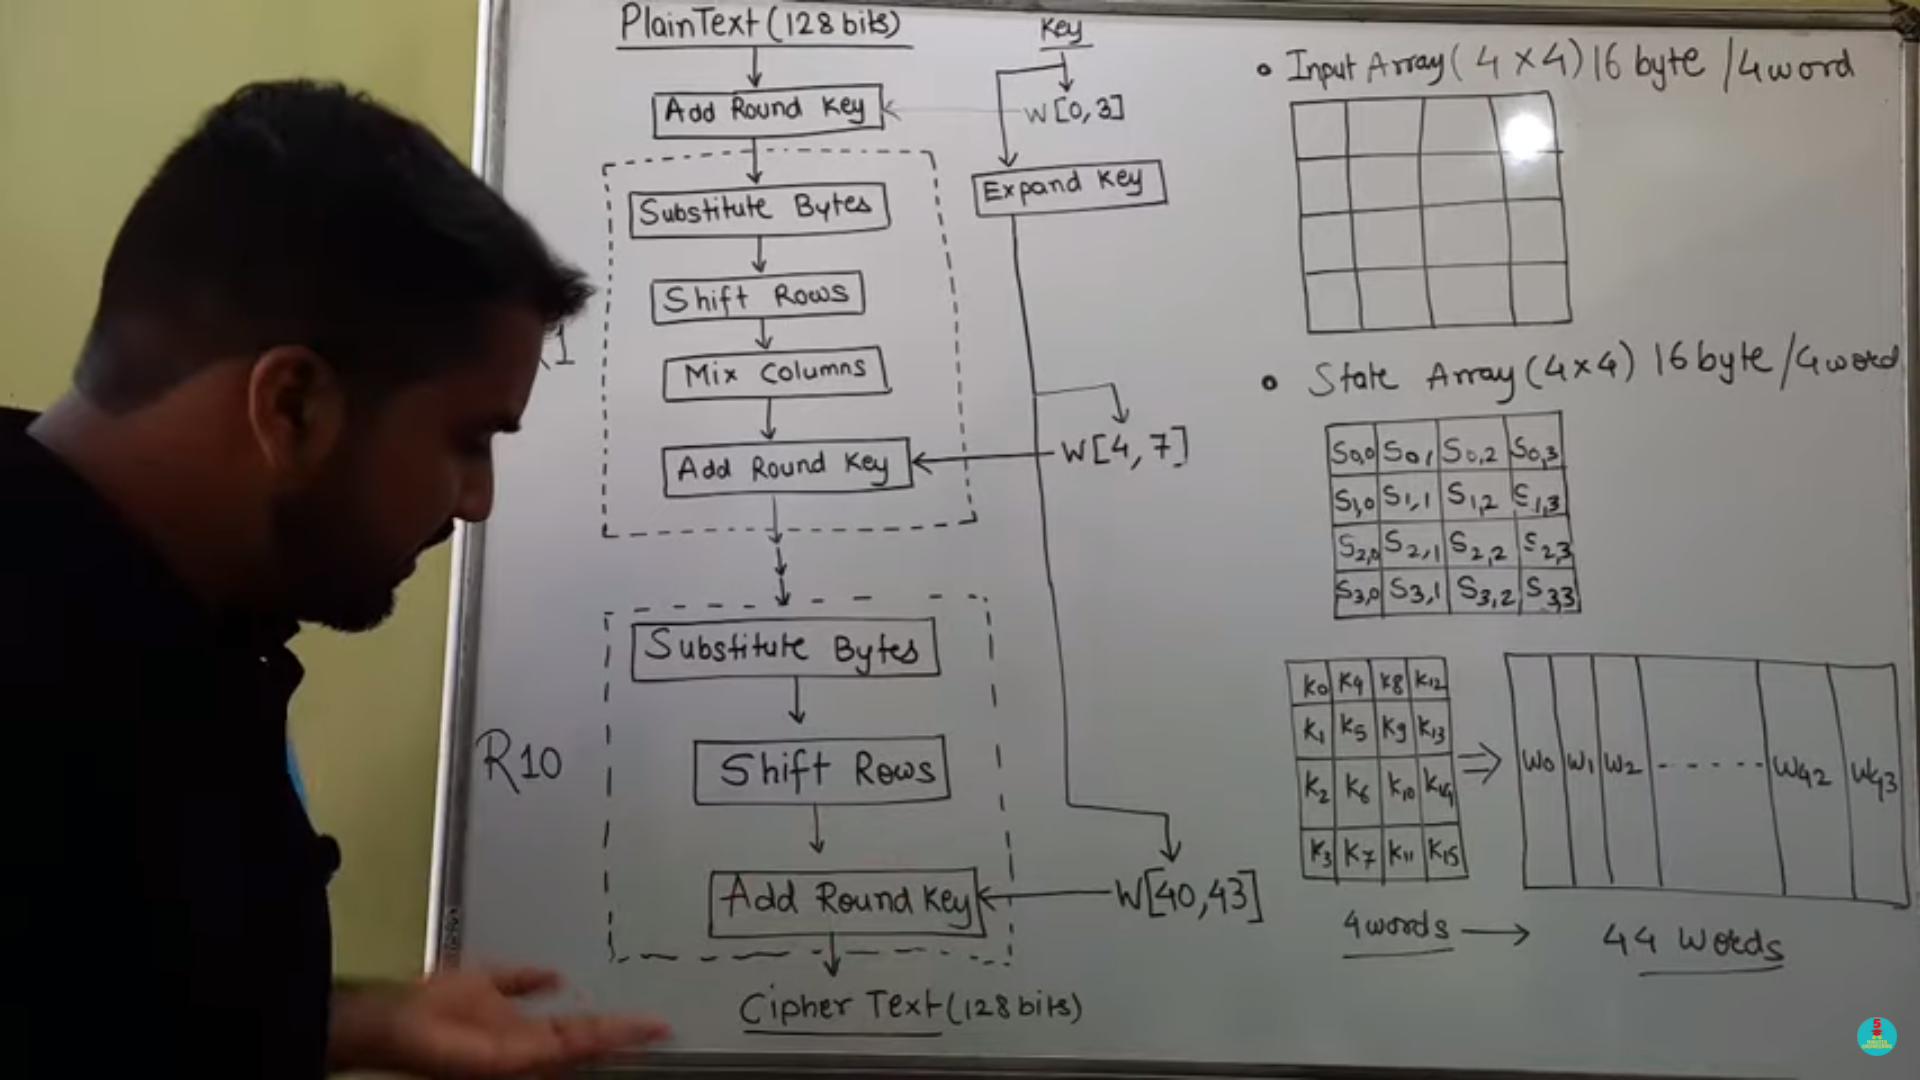 PlainText (128 bits)
Key
Add Round Key
W[0,3]
Substitute Bytes
Expand Key
Shift Rows
Mix Columns
Add Round Key
W[4,7]
Substitute Bytes
R10
Shift Rows
Add Round Key
W[40,43]
Cipher Text (128 bits)
• Input Array (4×4) 16 byte /4word
• State Array (4×4) 16 byte /4word
S0,0 S0,1 S0,2 S0,3
S1,0 S1,1 S1,2 S1,3
S2,0 S2,1 S2,2 S2,3
S3,0 S3,1 S3,2 S3,3
K0 K4 K8 K12
K1 K5 K9 K13
K2 K6 K10 K14
K3 K7 K11 K15
W0 W1 W2 ------ W42 W43
4words → 44 Words